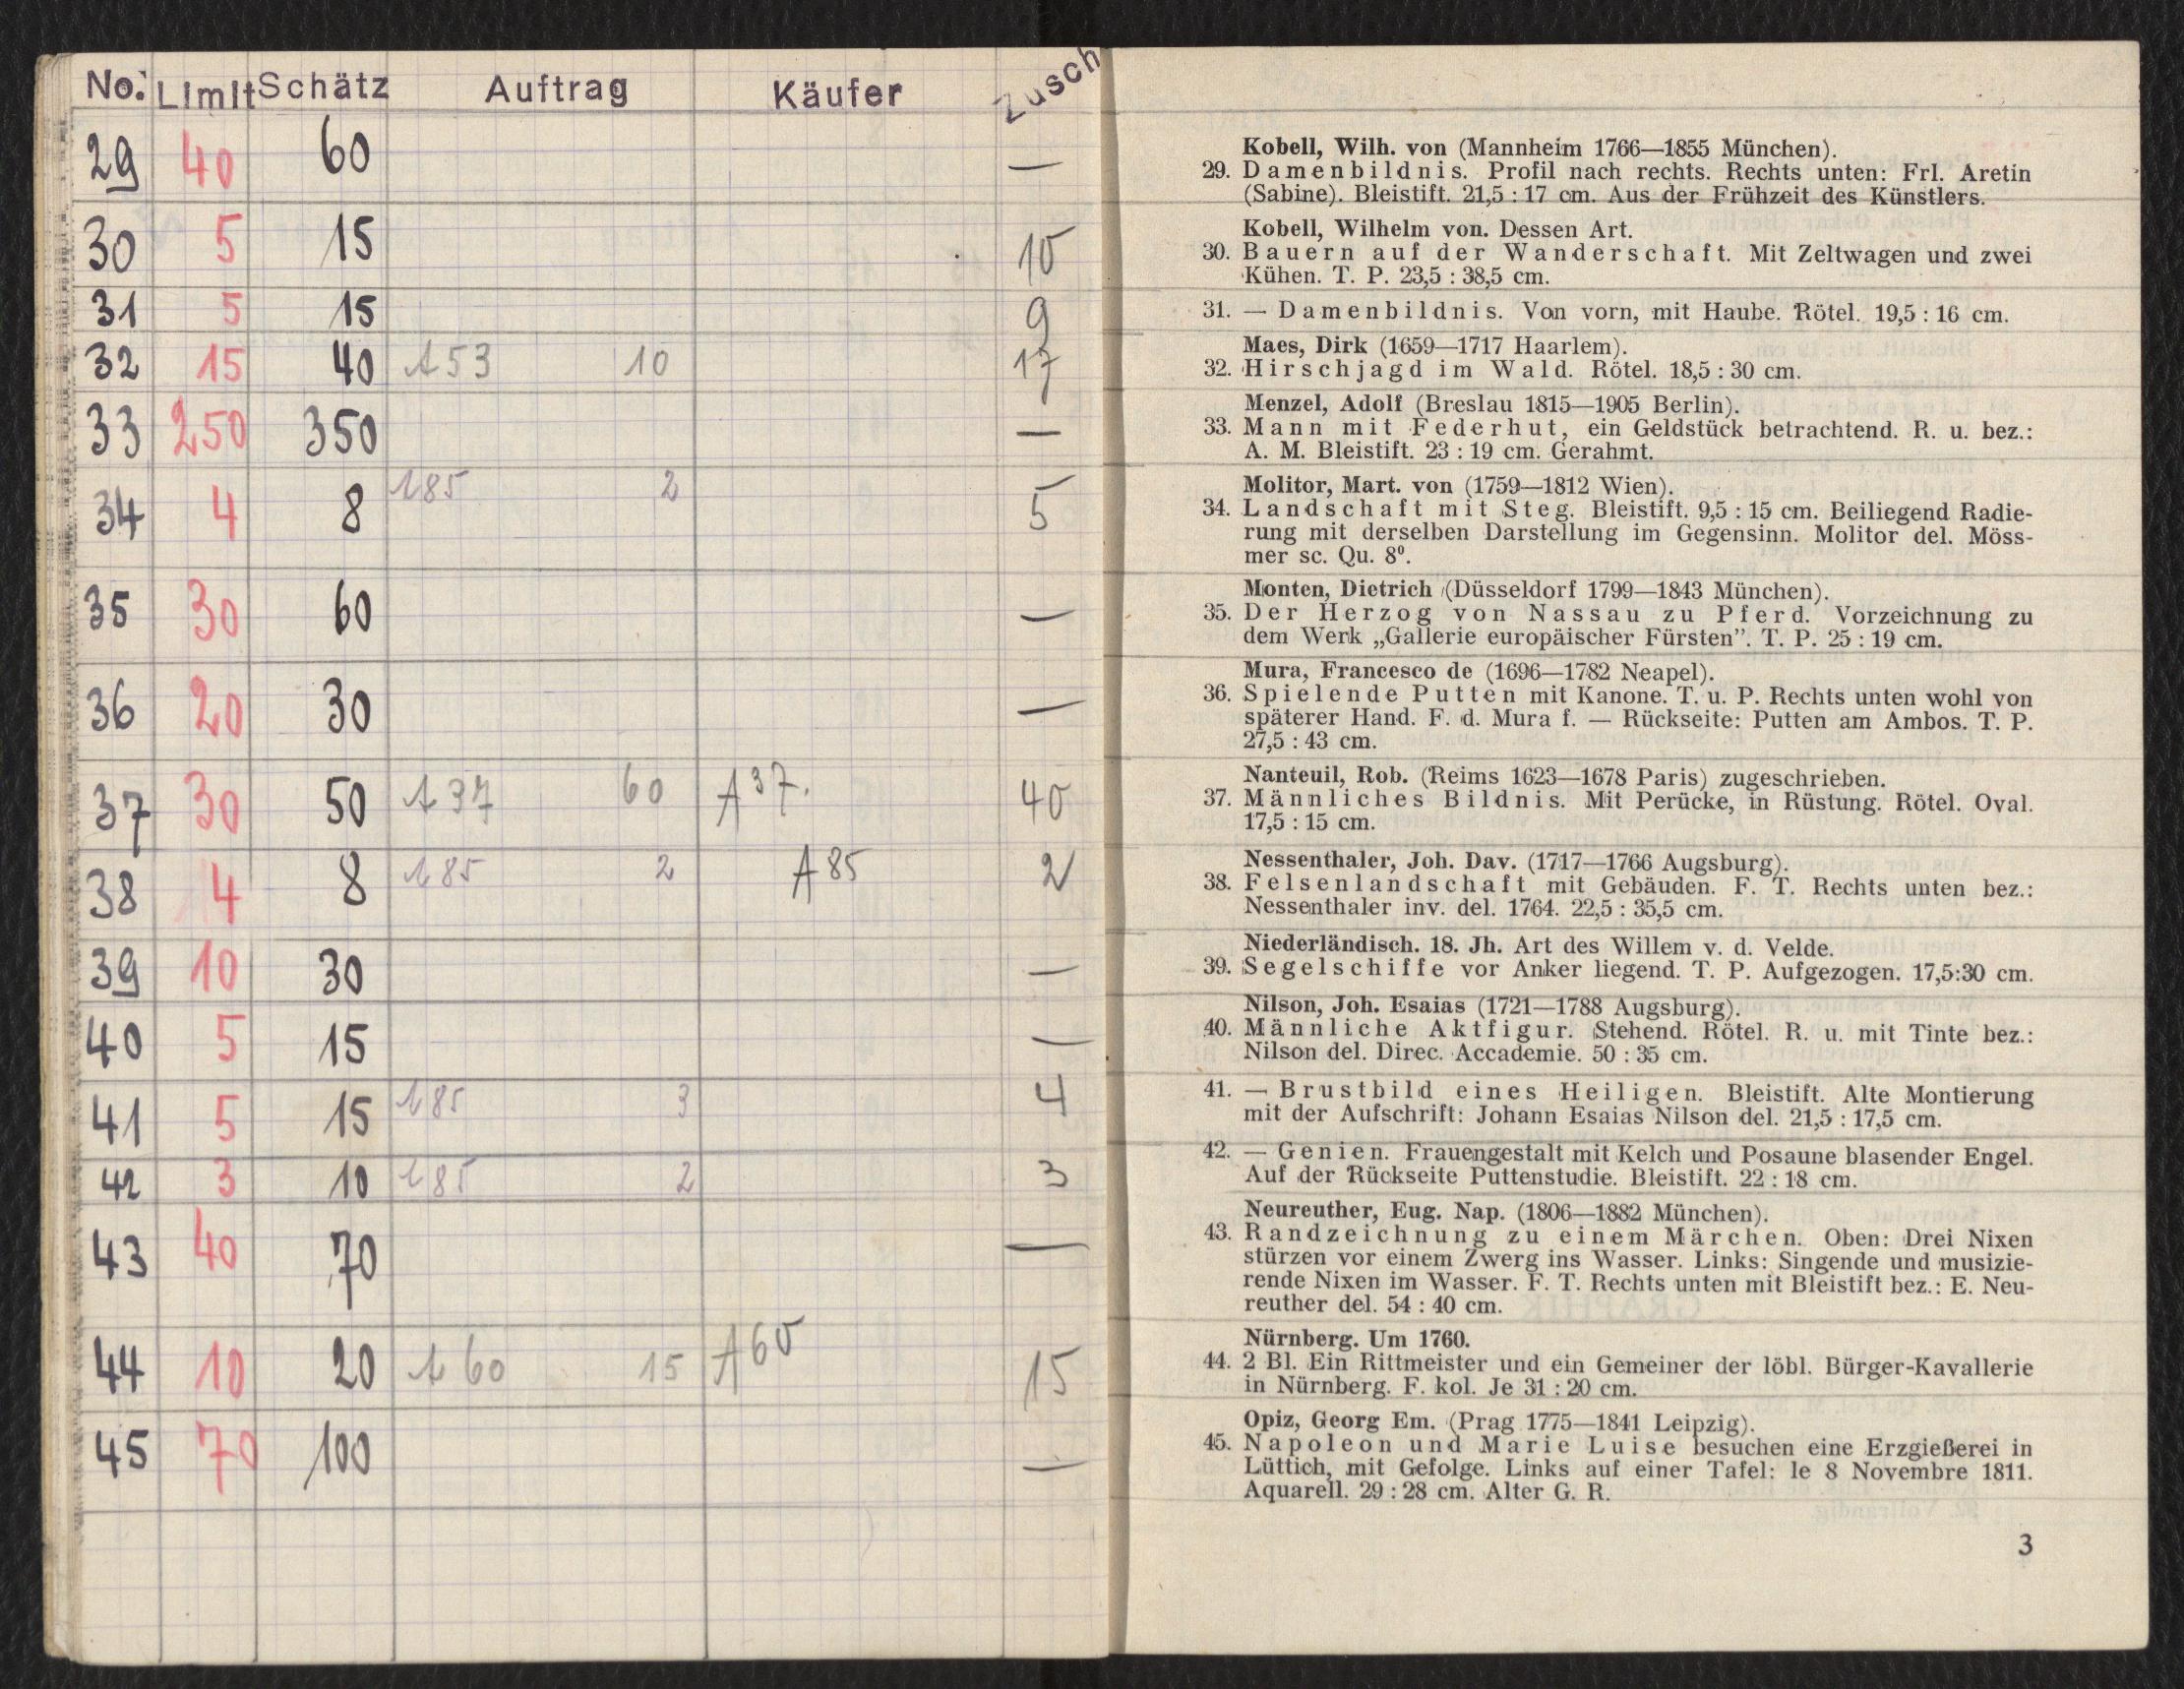 No. Limit Schätz Auftrag Käufer Zusch
29 40 60 —
30 5 15 10
31 5 15 9
32 15 40 A53 10 17
33 250 350 —
34 4 8 A85 2 5
35 30 60 —
36 20 30 —
37 30 50 A37 60 A37. 40
38 4 8 A85 2 A85 2
39 10 30 —
40 5 15 —
41 5 15 A85 3 4
42 3 10 A85 2 3
43 40 70 —
44 10 20 A60 15 A60 15
45 70 100 —
Kobell, Wilh. von (Mannheim 1766—1855 München).
29. Damenbildnis. Profil nach rechts. Rechts unten: Frl. Aretin
(Sabine). Bleistift. 21,5 : 17 cm. Aus der Frühzeit des Künstlers.
Kobell, Wilhelm von. Dessen Art.
30. Bauern auf der Wanderschaft. Mit Zeltwagen und zwei
Kühen. T. P. 23,5 : 38,5 cm.
31. — Damenbildnis. Von vorn, mit Haube. Rötel. 19,5 : 16 cm.
Maes, Dirk (1659—1717 Haarlem).
32. Hirschjagd im Wald. Rötel. 18,5 : 30 cm.
Menzel, Adolf (Breslau 1815—1905 Berlin).
33. Mann mit Federhut, ein Geldstück betrachtend. R. u. bez.:
A. M. Bleistift. 23 : 19 cm. Gerahmt.
Molitor, Mart. von (1759—1812 Wien).
34. Landschaft mit Steg. Bleistift. 9,5 : 15 cm. Beiliegend Radie-
rung mit derselben Darstellung im Gegensinn. Molitor del. Möss-
mer sc. Qu. 8⁰.
Monten, Dietrich (Düsseldorf 1799—1843 München).
35. Der Herzog von Nassau zu Pferd. Vorzeichnung zu
dem Werk „Gallerie europäischer Fürsten”. T. P. 25 : 19 cm.
Mura, Francesco de (1696—1782 Neapel).
36. Spielende Putten mit Kanone. T. u. P. Rechts unten wohl von
späterer Hand. F. d. Mura f. — Rückseite: Putten am Ambos. T. P.
27,5 : 43 cm.
Nanteuil, Rob. (Reims 1623—1678 Paris) zugeschrieben.
37. Männliches Bildnis. Mit Perücke, in Rüstung. Rötel. Oval.
17,5 : 15 cm.
Nessenthaler, Joh. Dav. (1717—1766 Augsburg).
38. Felsenlandschaft mit Gebäuden. F. T. Rechts unten bez.:
Nessenthaler inv. del. 1764. 22,5 : 35,5 cm.
Niederländisch. 18. Jh. Art des Willem v. d. Velde.
39. Segelschiffe vor Anker liegend. T. P. Aufgezogen. 17,5:30 cm.
Nilson, Joh. Esaias (1721—1788 Augsburg).
40. Männliche Aktfigur. Stehend. Rötel. R. u. mit Tinte bez.:
Nilson del. Direc. Accademie. 50 : 35 cm.
41. — Brustbild eines Heiligen. Bleistift. Alte Montierung
mit der Aufschrift: Johann Esaias Nilson del. 21,5 : 17,5 cm.
42. — Genien. Frauengestalt mit Kelch und Posaune blasender Engel.
Auf der Rückseite Puttenstudie. Bleistift. 22 : 18 cm.
Neureuther, Eug. Nap. (1806—1882 München).
43. Randzeichnung zu einem Märchen. Oben: Drei Nixen
stürzen vor einem Zwerg ins Wasser. Links: Singende und musizie-
rende Nixen im Wasser. F. T. Rechts unten mit Bleistift bez.: E. Neu-
reuther del. 54 : 40 cm.
Nürnberg. Um 1760.
44. 2 Bl. Ein Rittmeister und ein Gemeiner der löbl. Bürger-Kavallerie
in Nürnberg. F. kol. Je 31 : 20 cm.
Opiz, Georg Em. (Prag 1775—1841 Leipzig).
45. Napoleon und Marie Luise besuchen eine Erzgießerei in
Lüttich, mit Gefolge. Links auf einer Tafel: le 8 Novembre 1811.
Aquarell. 29 : 28 cm. Alter G. R.
3